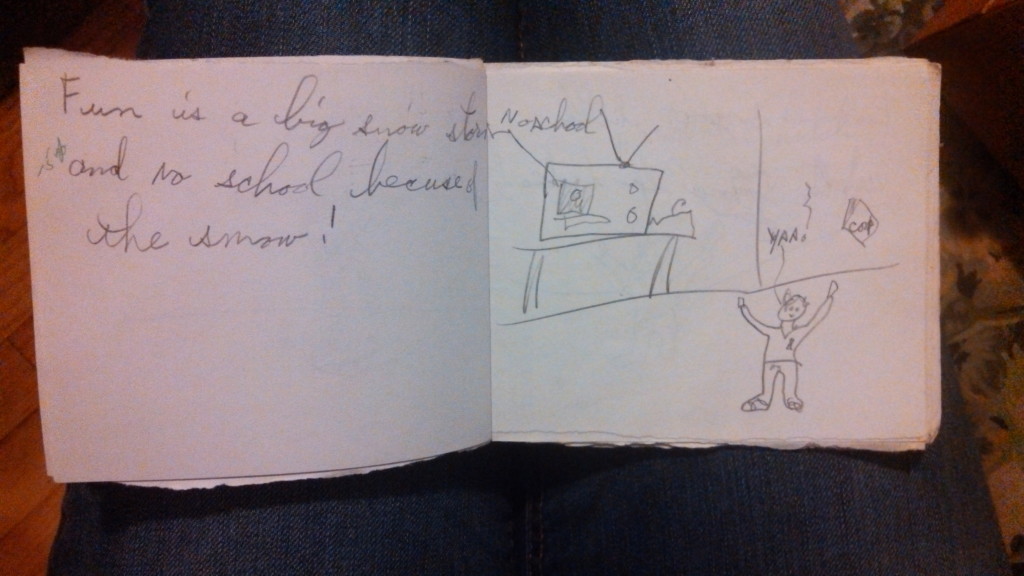 Fun is a big snow storm
and no school becused
the snow!
No school
YAA!